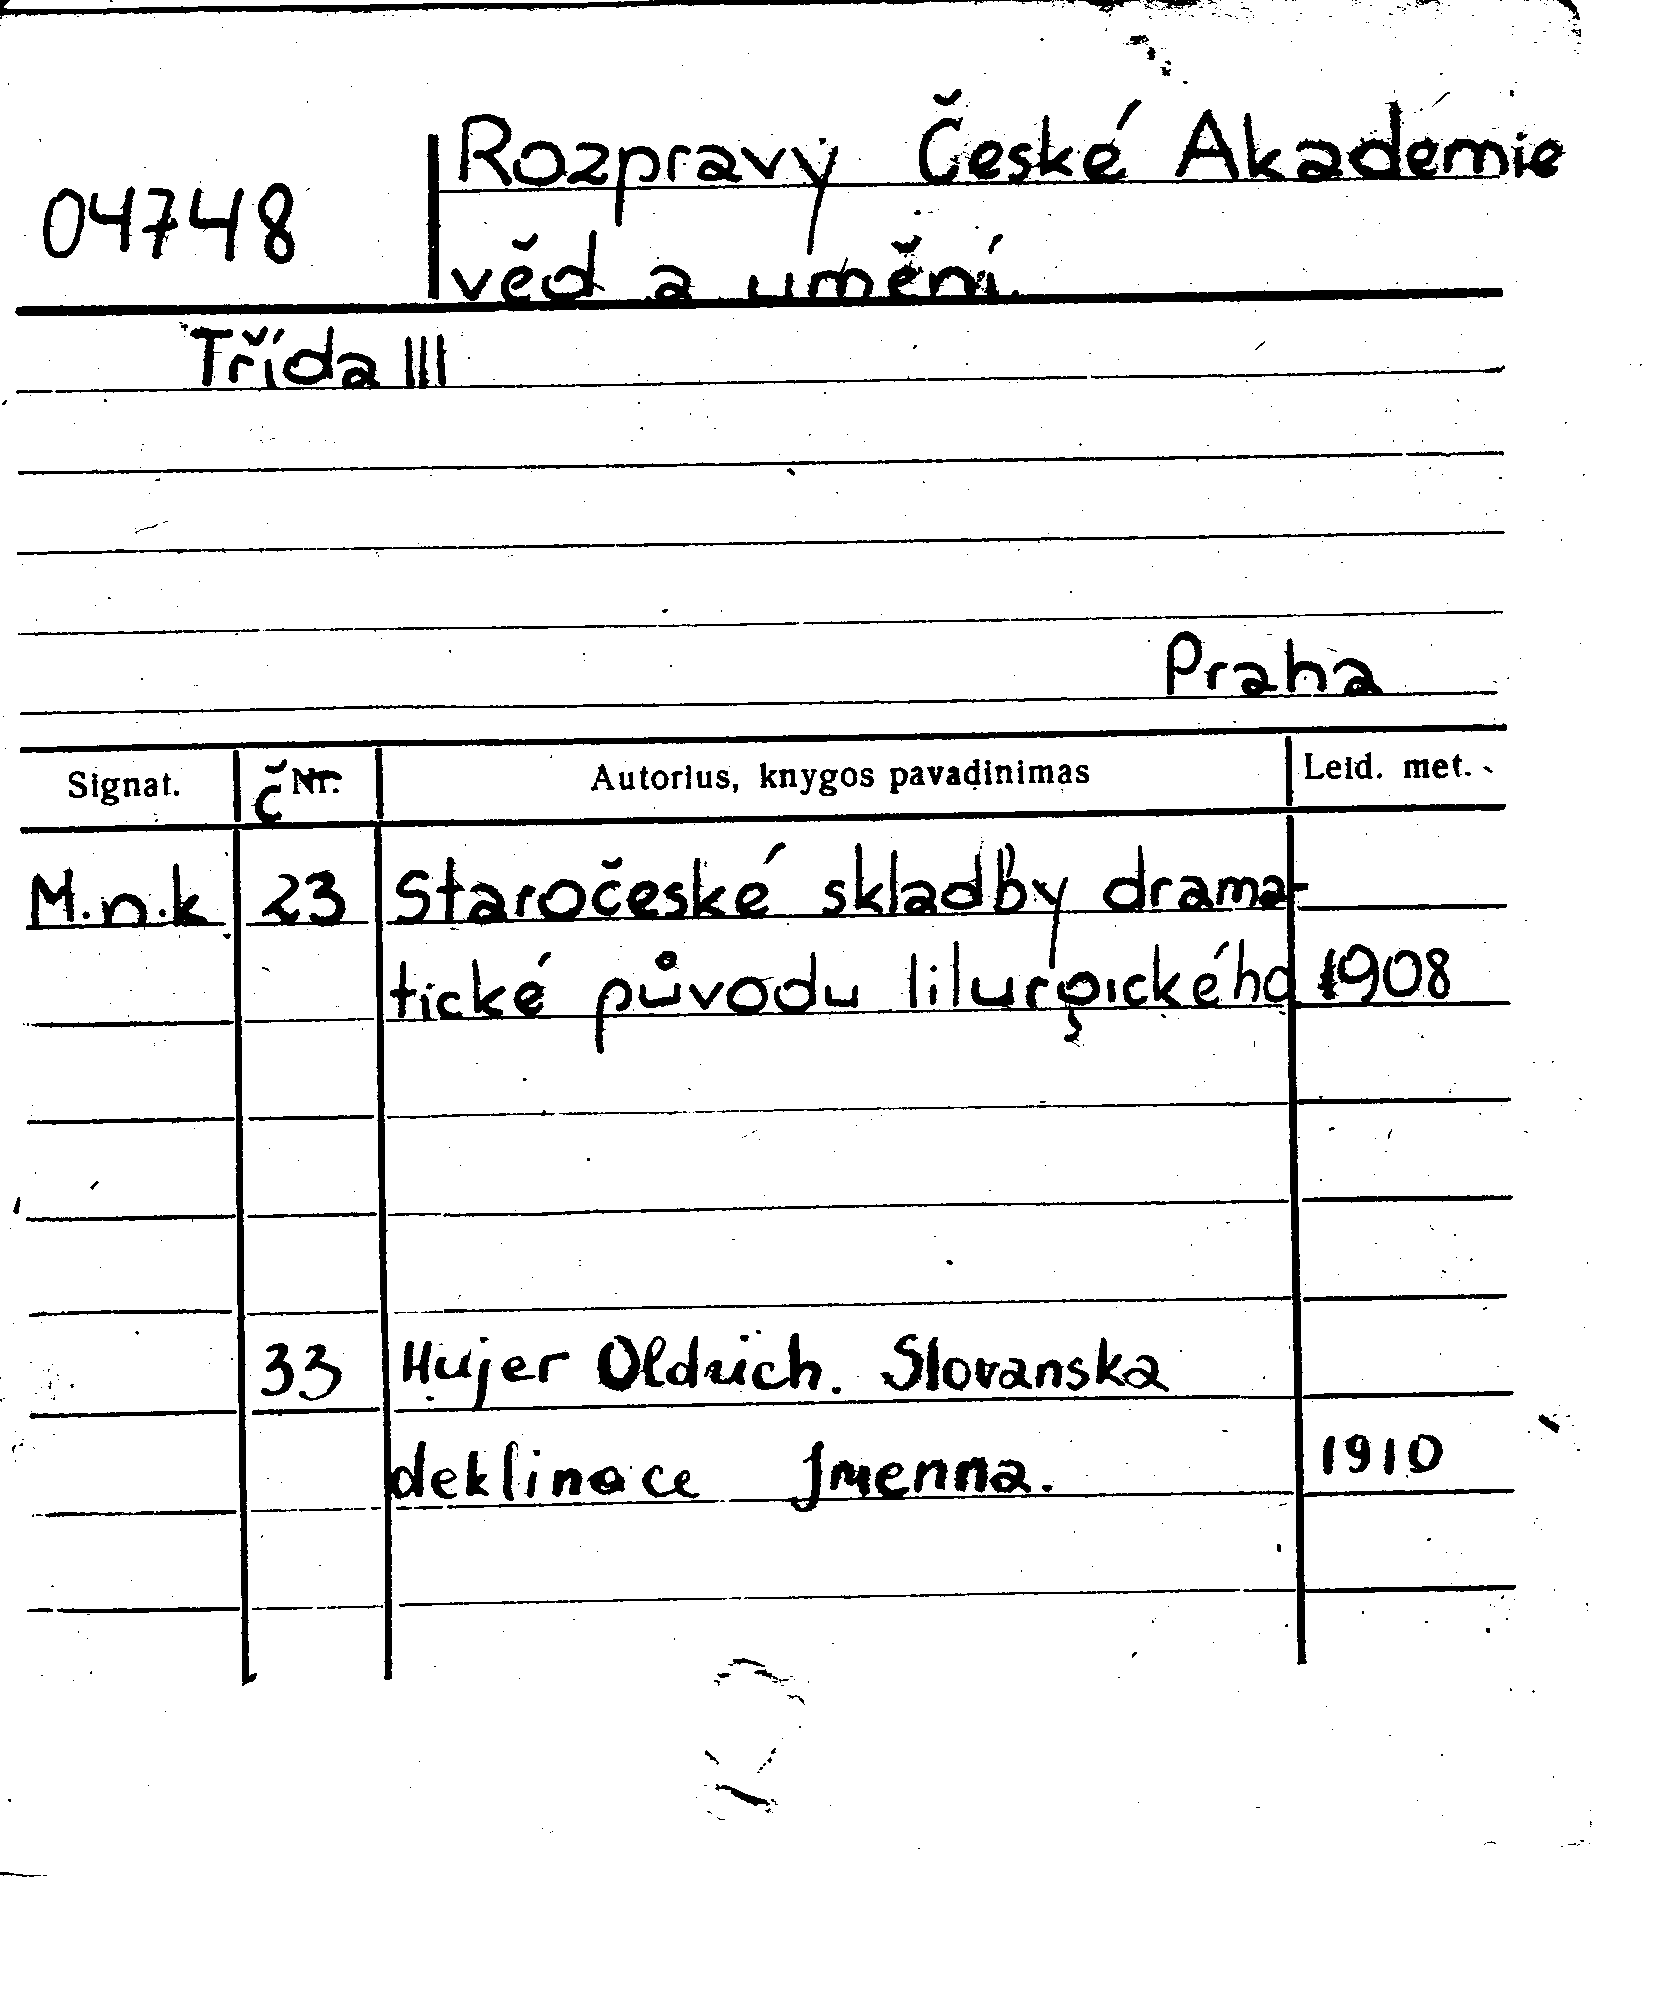 Rozpravy České Akademie
04748
věd a umění.
Třída III
Praha
Signat. č Nr. Autorius, knygos pavadinimas Leid. met.
M.n.k 23 Staročeské skladby drama-
tické původu lilurgického 1908
33 Hujer Oldrich. Slovanska
deklinace Jmenna. 1910